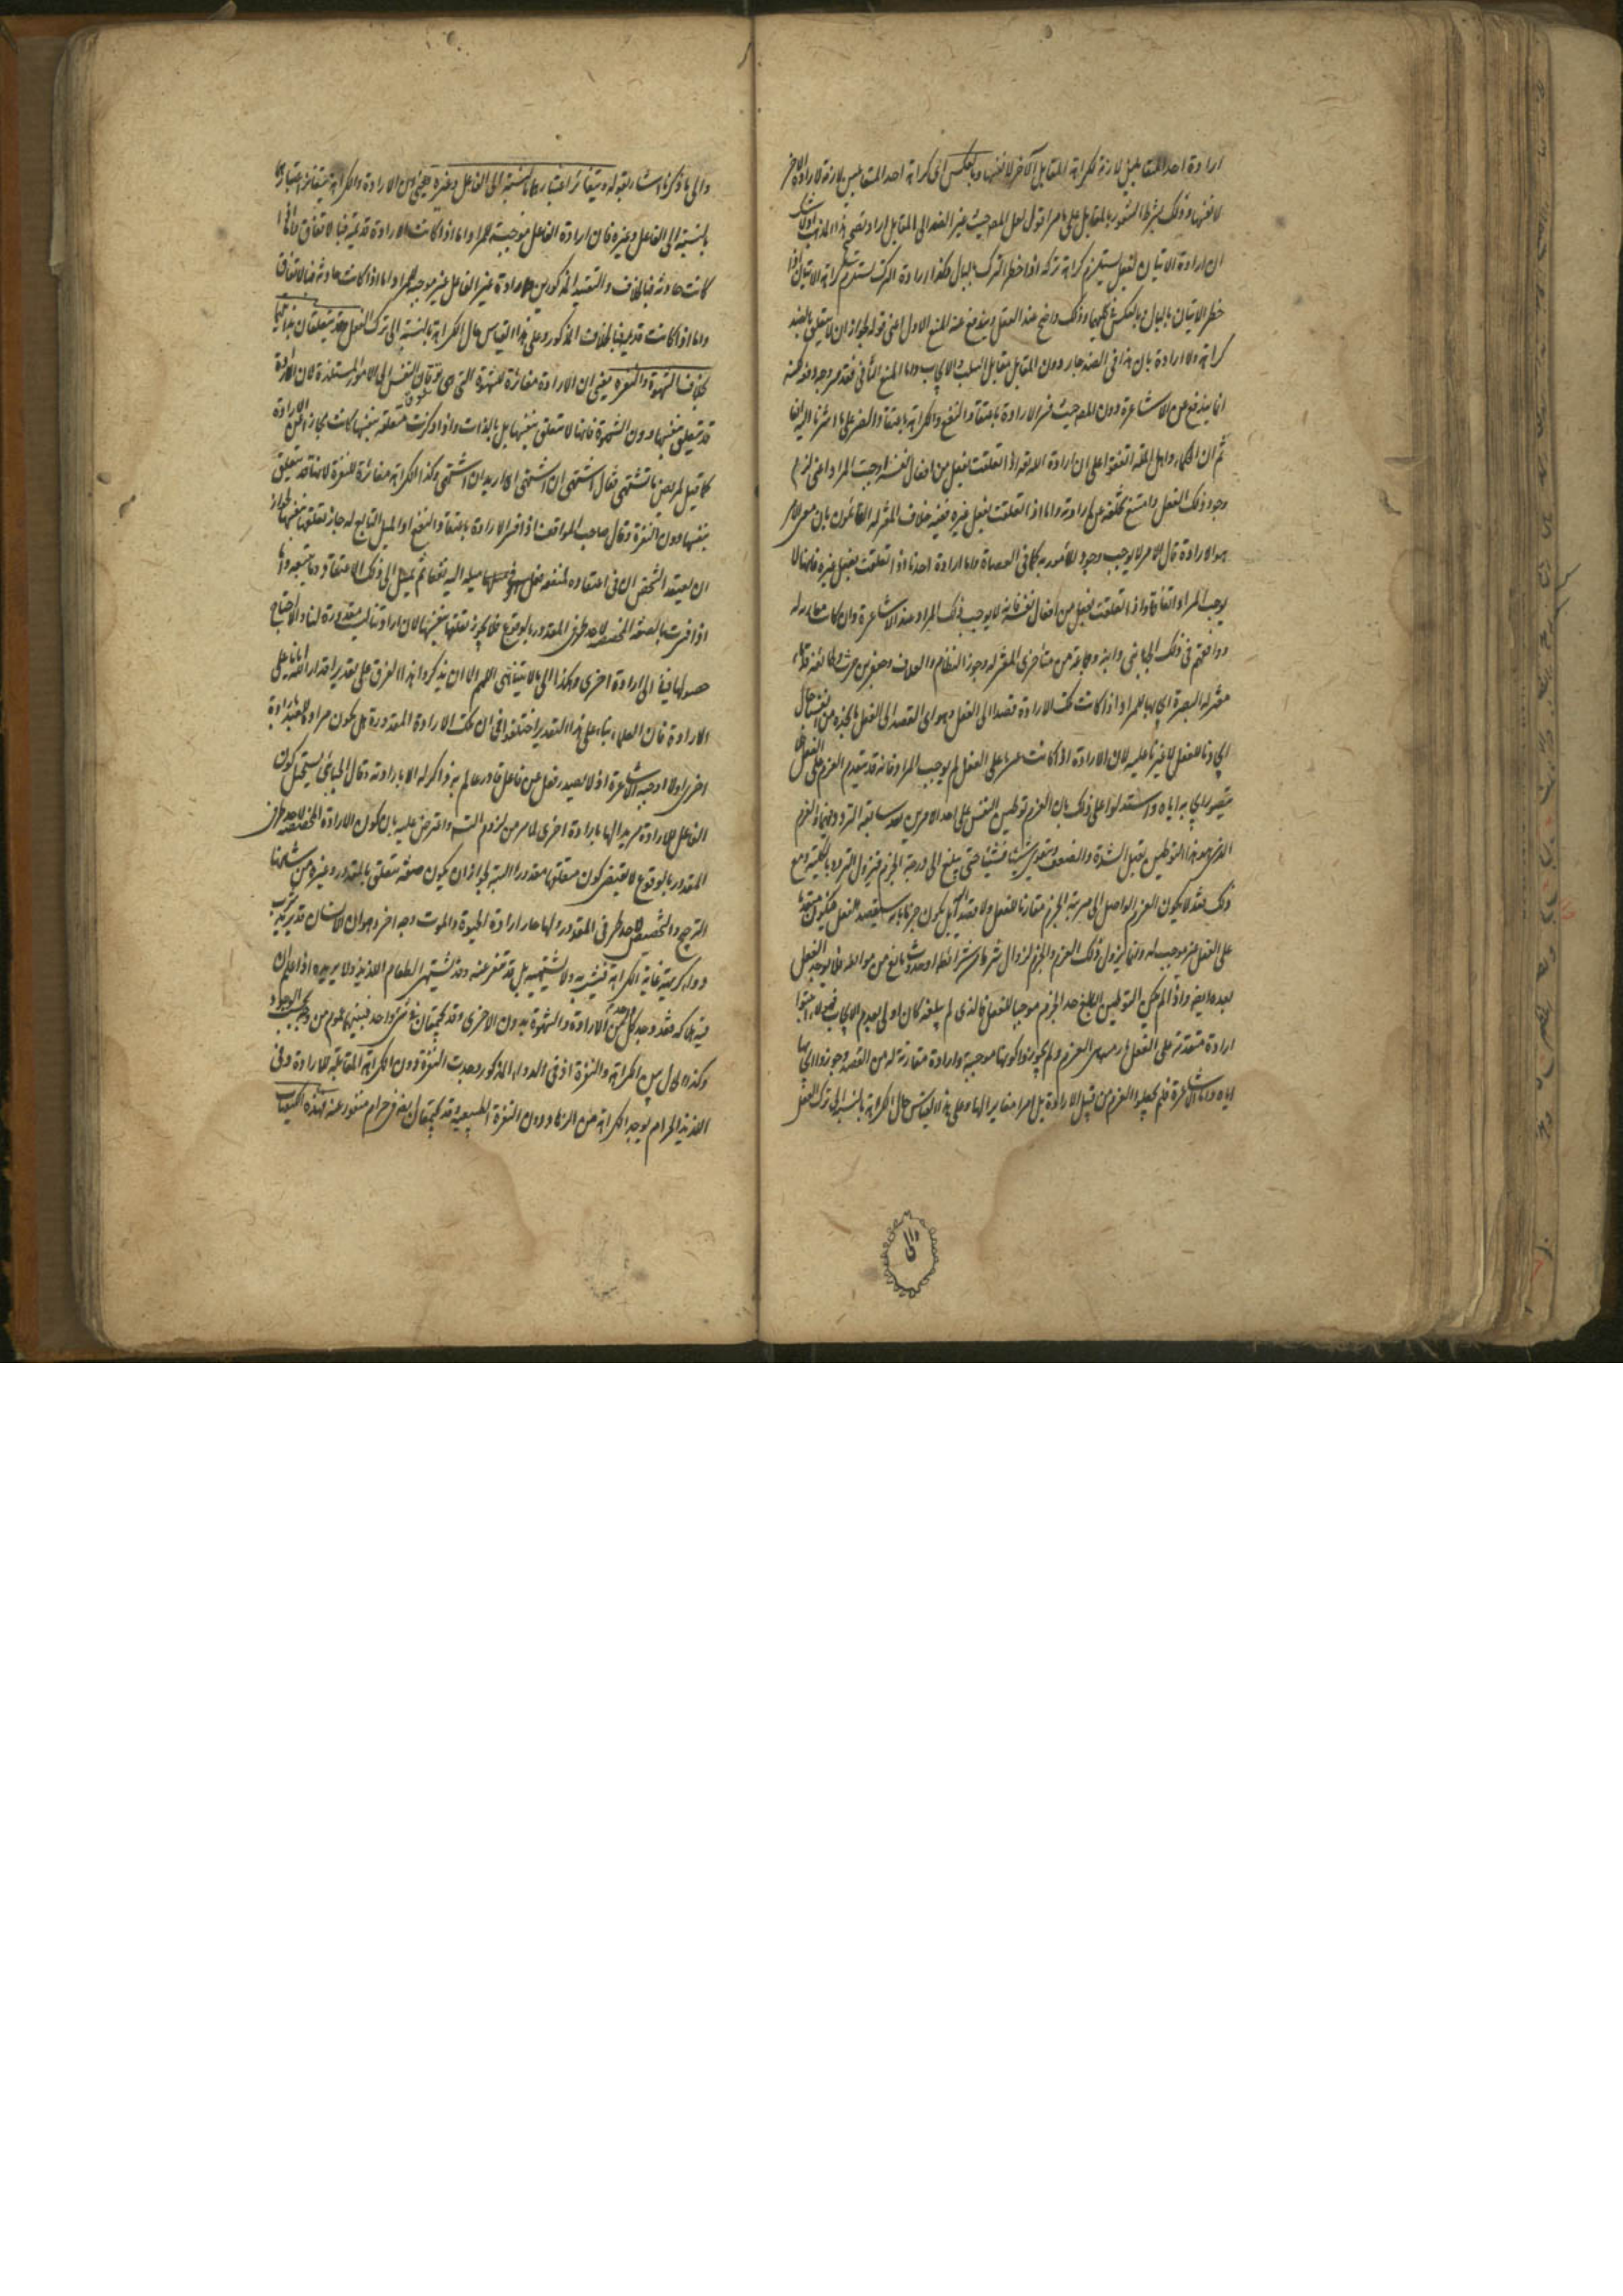 ارادة احد المتقابلين لازمة لكراهة المقابل الآخر لا نفسها وبالعكس اى كراهة احد المتقابلين لازمة لارادة الآخر
لا نفسها وذلك بشرط الشعور بالمقابل على ما مر اقول لعل المص حيث غير الضد الى المقابل اراد تصحيح هذا المذهب اذ لا شك
ان ارادة الاتيان لفعل يستلزم كراهة تركه اذا خطر الترك بالبال وكذا ارادة الترك يستلزم كراهة الاتيان اذا
خطر الاتيان بالبال وبالعكس وذلك واضح عند العقل ويندفع عنه المنع الاول اعنى قوله لجواز ان لا يتعلق بالضد
كراهة ولا ارادة بان هذا فى الضد جار دون المقابل تقابل السلب والايجاب واما المنع الثانى فقد مر وجه دفعه لكنه
انما يندفع عن الاشاعرة دون المص حيث فسر الارادة باعتقاد النفع والكراهة باعتقاد الضر على ما اشرنا اليه
ثم ان الحكماء واهل الملة اتفقوا على ان ارادة الله تعالى اذا تعلقت بفعل من افعال نفسه اوجبت المراد اعنى لزم
وجود ذلك الفعل وامتنع تخلفه عن ارادته واما اذا تعلقت بفعل غيره ففيه خلاف المعتزلة القائلون بان معنى الامر
هو الارادة قال الامر لا يوجب وجود المأمور به كما فى العصاة واما ارادة احدنا اذا تعلقت بفعل غيره فانها لا
يوجب المراد اتفاقا واذا تعلقت بفعل من افعال نفسه فانه لا يوجب ذلك المراد عند الاشاعرة وان كانت مقارنة له
ووافقهم فى ذلك الجبائى وابنه وجماعة من متأخرى المعتزلة وجوز النظام والعلاف وجعفر بن حرث وطائفة من قدماء
معتزلة البصرة ايجابها للمراد اذا كانت تلك الارادة قصدا الى الفعل وهو اى القصد الى الفعل ما نجده من انفسنا حال
ايجادنا للفعل لا غيرنا عليه لان الارادة اذا كانت عزما على الفعل لم يوجب المراد فانه قد يتقدم العزم على الفعل
يتصور ايجابه اياه واستدلوا على ذلك بان العزم توطين النفس على احد الامرين بعد سابقة التردد فيهما والعزم
الذى هو هذا التوطين يقبل الشدة والضعف ويتقوى شيئا فشيئا حتى يبلغ الى درجة الجزم فيزول التردد بالكلية ومع
ذلك فقد لا يكون العزم الواصل الى مرتبة الجزم مقارنا للفعل ولا قصدا اليه بل يكون جزما بانه سيقصد الفعل فيكون متقدما
على الفعل غير موجب له وانما يزول ذلك العزم والجزم لزوال شرط من شرائطه او حدوث مانع من موانعه فلا يوجد الفعل
بعده ايضا واذا لم يكن التوطين البالغ حد الجزم موجبا للفعل فالذى لم يبلغه كان اولى بعدم الايجاب فهؤلاء اثبتوا
ارادة متقدمة على الفعل هى العزم ولم يجوزوا كونها موجبة وارادة مقارنة له هى القصد وجوزوا ايجابها
اياه واما الاشاعرة فلم يجعلوا العزم من قبيل الارادة بل امرا مغايرا لها وعلى هذا القياس حال الكراهة بالنسبة الى ترك الفعل
والى ما ذكرنا اشار بقوله ويتغاير اعتبارهما بالنسبة الى الفاعل وغيره يعنى ان الارادة والكراهة يتغايران اعتبارهما
بالنسبة الى الفاعل وغيره فان ارادة الفاعل موجبة للمراد اما اذا كانت الارادة قديمة فبالاتفاق واما اذا
كانت حادثة فبالخلاف والتقييد المذكورين وارادة غير الفاعل غير موجبة للمراد اما اذا كانت حادثة فبالاتفاق
واما اذا كانت قديمة فبالخلاف المذكور وعلى هذا القياس حال الكراهة بالنسبة الى ترك الفعل وقد يتعلقان بذاتيهما
بخلاف الشهوة والنفرة يعنى ان الارادة مغايرة للشهوة التى هى توقان النفس الى الامور المستلذة فان الارادة
قد يتعلق بنفسها دون الشهوة فانها لا يتعلق بنفسها بل باللذات واذا ذكرت متعلقة بنفسها كانت مجازا عن الارادة
كما قيل لمريض ما تشتهى فقال اشتهى ان اشتهى اى اريد ان اشتهى وكذا الكراهة مغايرة للنفرة لانها قد يتعلق
بنفسها دون النفرة وقال صاحب المواقف اذا فسر الارادة باعتقاد النفع او الميل التابع له جاز تعلقها بنفسها لجواز
ان يعتقد الشخص ان فى اعتقاده لمنفعة فعل او ميله اليه نفعا ثم يميل الى ذلك الاعتقاد وما يتبعه واما
اذا فسرت بالصفة المخصصة لاحد طرفى المقدور بالوقوع فلا يجوز تعلقها بنفسها لان ارادتنا ليست مقدورة لنا والا احتاج
حصولها فينا الى ارادة اخرى وهكذا الى ما لا يتناهى اللهم الا ان يذكروا هذا الفرق على تقدير اقدار الله ايانا على
الارادة فان العلماء بناء على هذا التقدير اختلفوا فى ان تلك الارادة المقدورة هل يكون مرادة للعبد بارادة
اخرى اولا اوجبه الاشاعرة اذ لا يصدر فعل عن فاعل قادر عالم به ذاكر له الا بارادته وقال الجبائى يستحيل كون
الفاعل للارادة مريدا لها بارادة اخرى لما مر من لزوم التسلسل واعترض عليه بان كون الارادة المخصصة لاحد طرفى
المقدور بالوقوع لا يقتضى كون متعلقها مقدورا البتة لجواز ان يكون صفة يتعلق بالمقدور وغيره من شانها
الترجيح والتخصيص لاحد طرفى المقدور ولهذا جاز ارادة الحيوة والموت وجه آخر وهو ان الانسان قد يريد شرب
دواء كريه غاية الكراهة فيشربه ولا يشتهيه بل قد تنفر عنه وقد يشتهى الطعام اللذيذ ولا يريده اذا علم ان
فيه هلاكه فقد وجد كل من الارادة والشهوة بدون الاخرى وقد يجتمعان فى شئ واحد فبينهما عموم من وجه بحسب الوجود
وكذا الحال بين الكراهة والنفرة اذ فى الدواء المذكور وجدت النفرة دون الكراهة المقابلة للارادة وفى
اللذيذ الحرام يوجد الكراهة من الزهاد دون النفرة الطبيعية وقد يجتمعان ايضا فى حرام منفور عنه فهذه الكيفيات